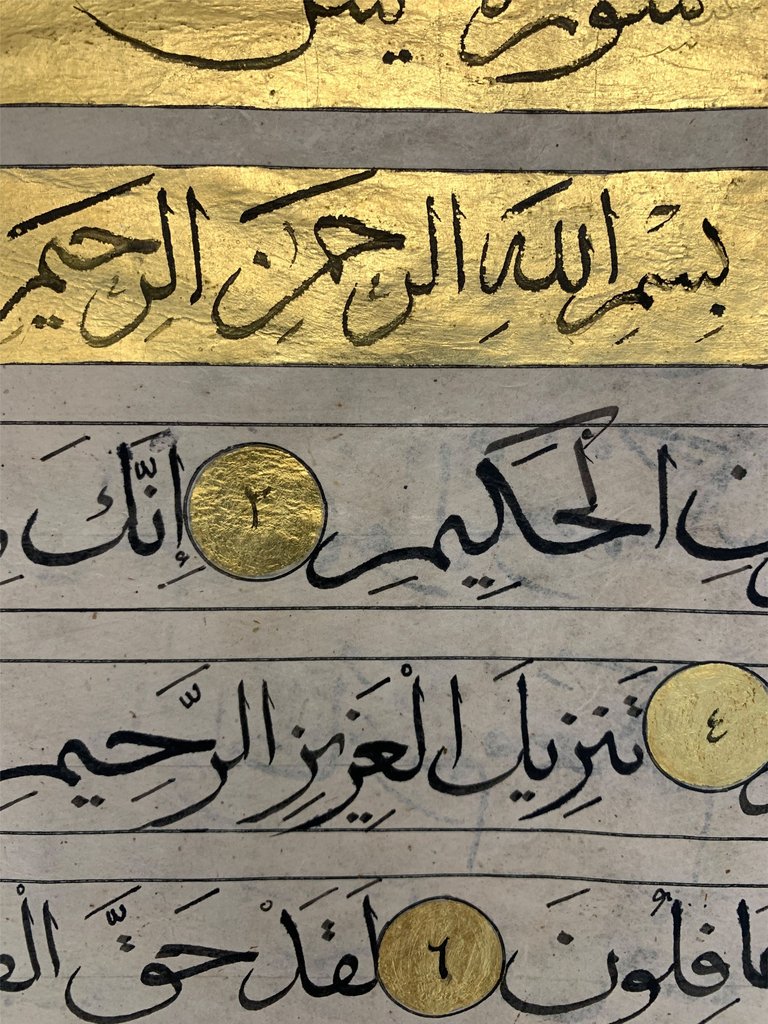 سورة يس
بسم الله الرحمن الرحيم
الْحَكِيمِ ٢ إِنَّكَ
٤ تَنزِيلَ الْعَزِيزِ الرَّحِيمِ
غَافِلُونَ ٦ لَقَدْ حَقَّ